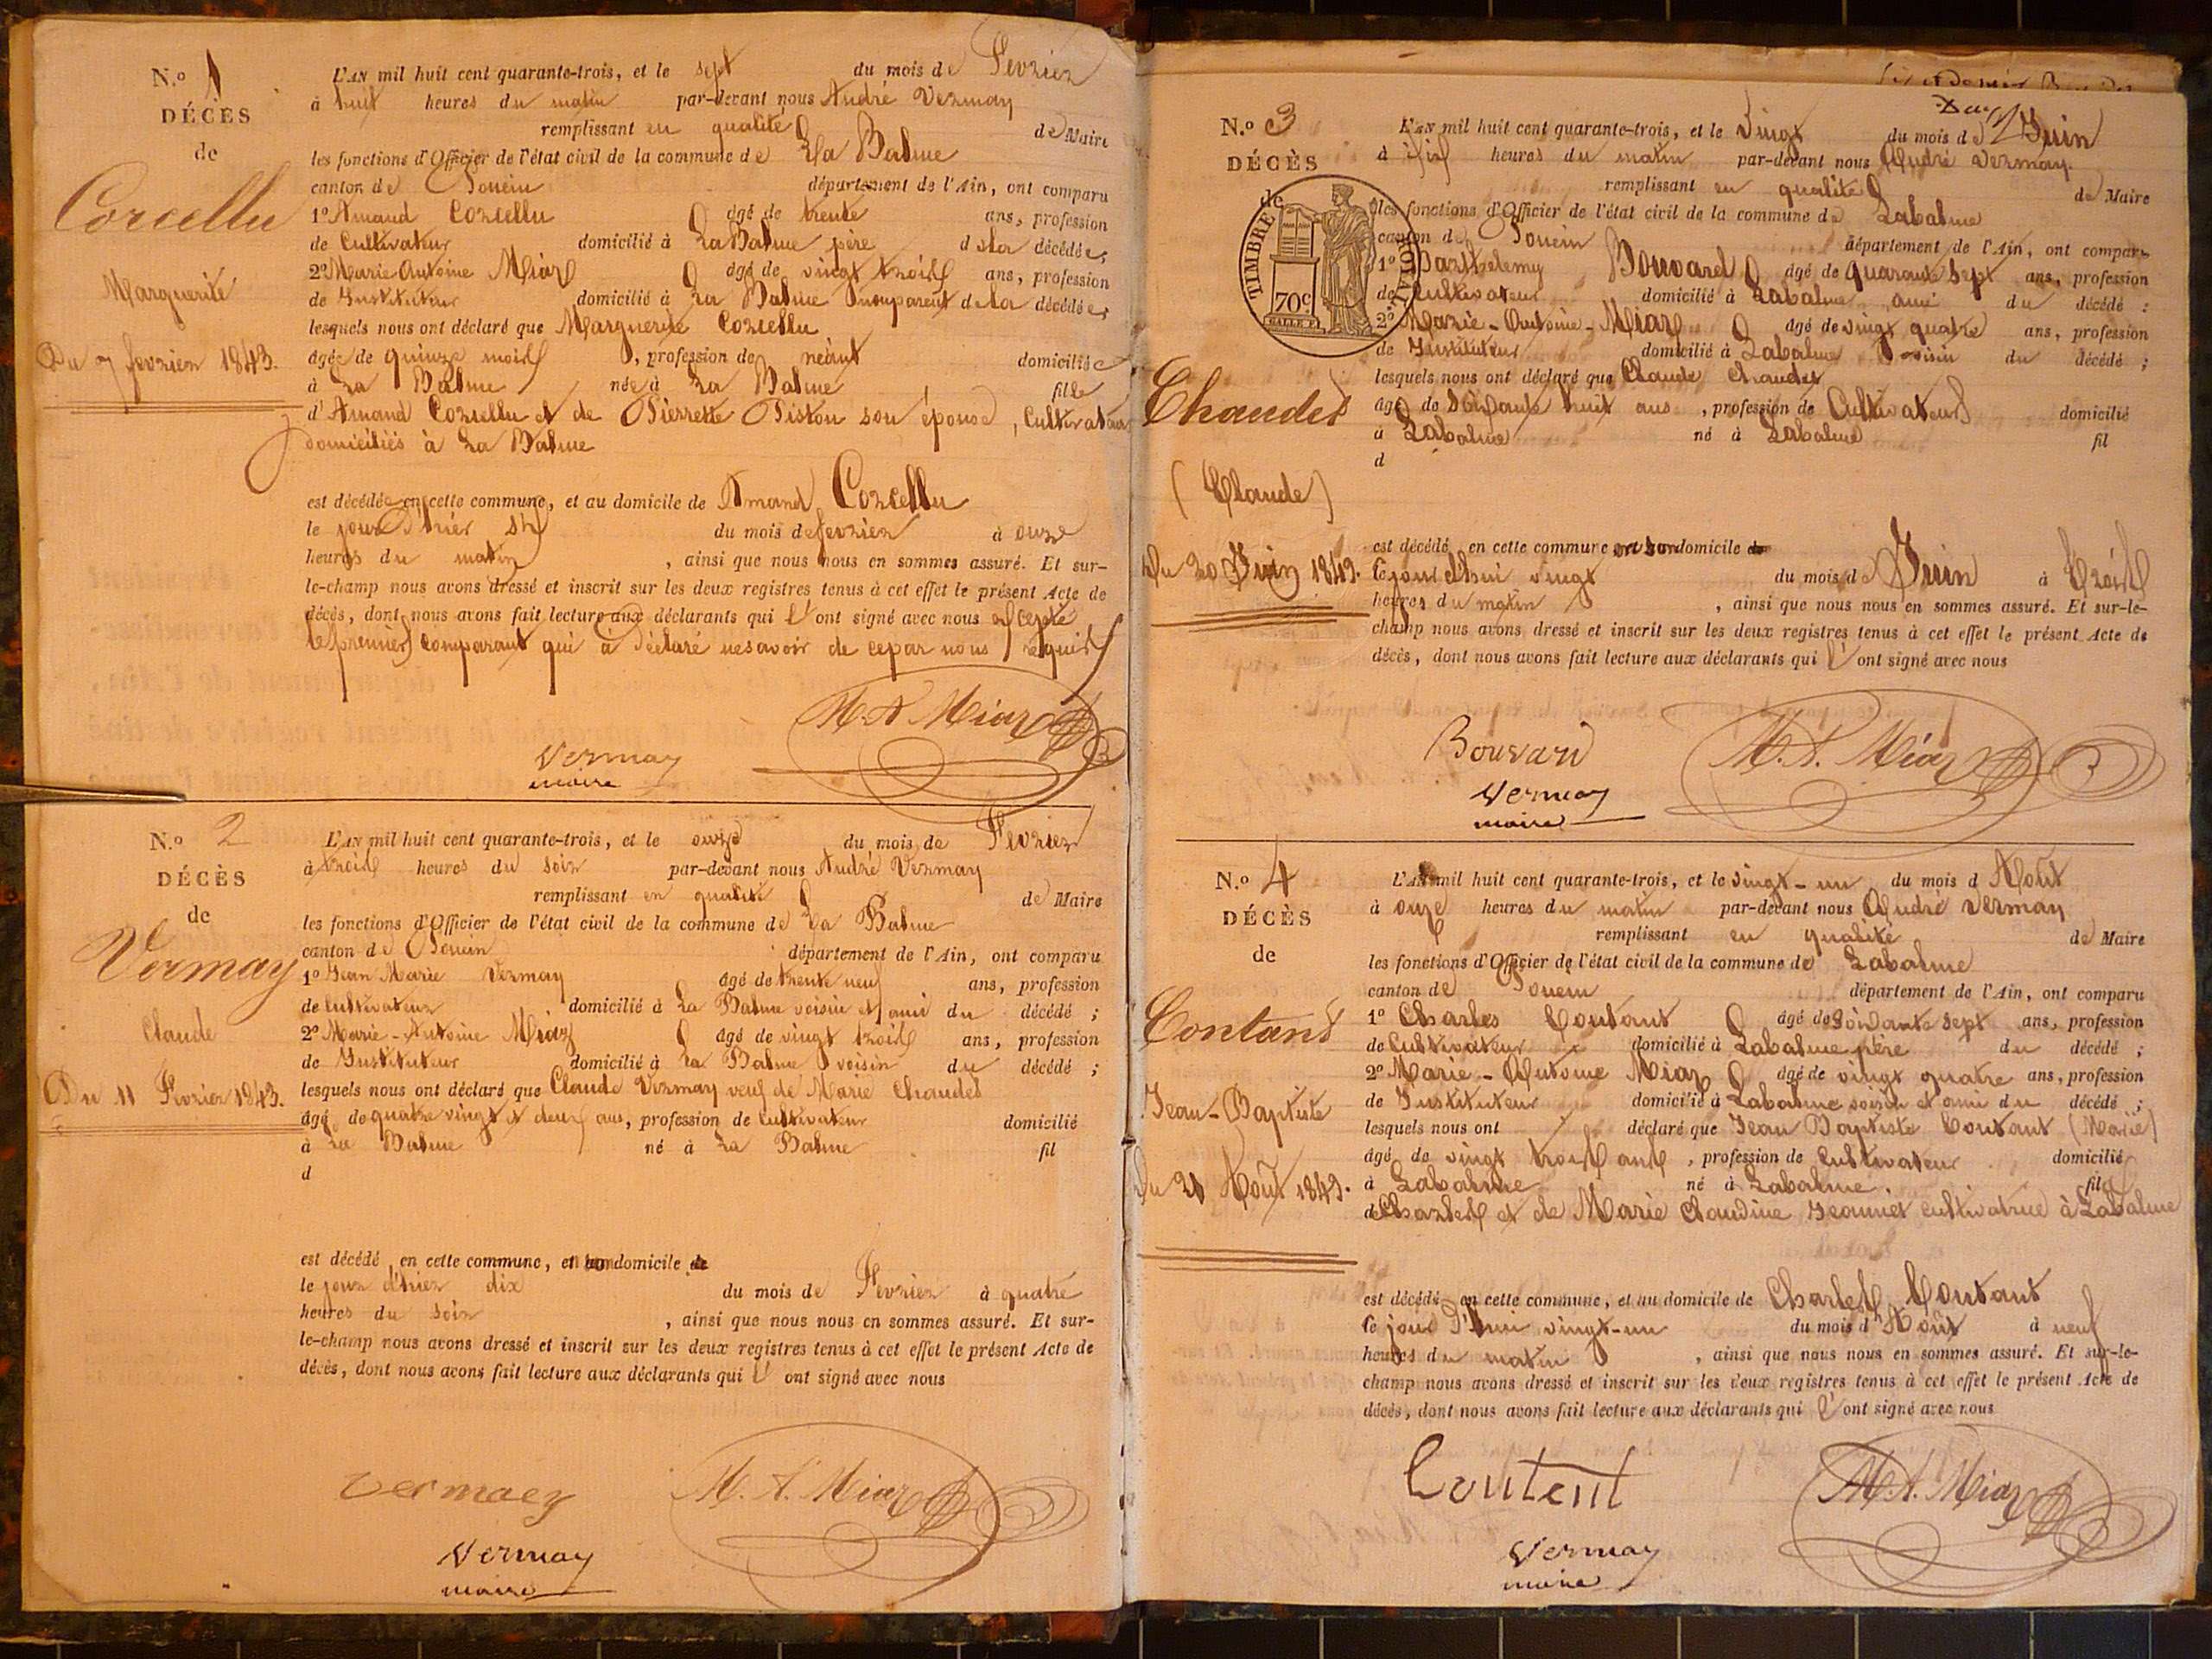 N.o 1
DÉCÈS
de
Corcellu
Marguerite
Du 7 fevrier 1843.
L'AN mil huit cent quarante-trois, et le sept du mois de Fevrier
à huit heures du matin par-devant nous André Vermay
remplissant en qualité de Maire
les fonctions d'Officier de l'état civil de la commune de La Balme
canton de Poncin département de l'Ain, ont comparu
1o Amand Corcellu âgé de trente ans, profession
de Cultivateur domicilié à La Balme père de la décédée;
2o Marie Antoine Miaz âgé de vingt trois ans, profession
de Instituteur domicilié à La Balme non parent de la décédée;
lesquels nous ont déclaré que Marguerite Corcellu
âgée de quinze mois, profession de néant domiciliée
à La Balme née à La Balme fille
d'Amand Corcellu et de Pierrette Piston son épouse, Cultivateurs
domiciliés à La Balme
est décédée en cette commune, et au domicile de Amand Corcellu
le jour d'hier six du mois de fevrier à onze
heures du matin, ainsi que nous nous en sommes assuré. Et sur-
le-champ nous avons dressé et inscrit sur les deux registres tenus à cet effet le présent Acte de
décès, dont nous avons fait lecture aux déclarants qui l'ont signé avec nous excepté
le premier comparant qui a déclaré ne savoir de ce par nous requis
M. A Miaz
Vermay
maire
N.o 2
DÉCÈS
de
Vermay
Claude
Du 11 Fevrier 1843.
L'AN mil huit cent quarante-trois, et le onze du mois de Fevrier
à trois heures du soir par-devant nous André Vermay
remplissant en qualité de Maire
les fonctions d'Officier de l'état civil de la commune de La Balme
canton de Poncin département de l'Ain, ont comparu
1o Jean Marie Vermay âgé de trente neuf ans, profession
de cultivateur domicilié à La Balme voisin et ami du décédé;
2o Marie-Antoine Miaz âgé de vingt trois ans, profession
de Instituteur domicilié à La Balme voisin du décédé;
lesquels nous ont déclaré que Claude Vermay veuf de Marie Chaudet
âgé de quatre vingt et deux ans, profession de cultivateur domicilié
à La Balme né à La Balme fil
d
est décédé en cette commune, et son domicile de
le jour d'hier dix du mois de Fevrier à quatre
heures du soir, ainsi que nous nous en sommes assuré. Et sur-
le-champ nous avons dressé et inscrit sur les deux registres tenus à cet effet le présent Acte de
décès, dont nous avons fait lecture aux déclarants qui l'ont signé avec nous
Vermaey
M. A. Miaz
Vermay
maire
N.o 3
DÉCÈS
de
TIMBRE
70c
Chaudet
(Claude)
Du 20 Juin 1843.
L'AN mil huit cent quarante-trois, et le vingt du mois de Juin
à dix heures du matin par-devant nous André Vermay.
remplissant en qualité de Maire
les fonctions d'Officier de l'état civil de la commune de Labalme
canton de Poncin département de l'Ain, ont comparu
1o Barthelemy Bouvard âgé de quarante sept ans, profession
de Cultivateur domicilié à Labalme ami du décédé;
2o Marie-Antoine-Miaz âgé de vingt quatre ans, profession
de Instituteur domicilié à Labalme voisin du décédé;
lesquels nous ont déclaré que Claude Chaudet
âgé de soixante huit ans, profession de Cultivateur domicilié
à Labalme né à Labalme fil
d
est décédé en cette commune en son domicile
le jour d'hui vingt du mois de Juin à trois
heures du matin, ainsi que nous nous en sommes assuré. Et sur-le-
champ nous avons dressé et inscrit sur les deux registres tenus à cet effet le présent Acte de
décès, dont nous avons fait lecture aux déclarants qui l'ont signé avec nous
Bouvard
M. A. Miaz
Vermay
maire
N.o 4
DÉCÈS
de
Contant
Jean-Baptiste
Du 21 Août 1843.
L'AN mil huit cent quarante-trois, et le vingt-un du mois d'Août
à onze heures du matin par-devant nous André Vermay
remplissant en qualité de Maire
les fonctions d'Officier de l'état civil de la commune de Labalme
canton de Poncin département de l'Ain, ont comparu
1o Charles Contant âgé de soixante sept ans, profession
de Cultivateur domicilié à Labalme père du décédé;
2o Marie-Antoine Miaz âgé de vingt quatre ans, profession
de Instituteur domicilié à Labalme voisin et ami du décédé;
lesquels nous ont déclaré que Jean Baptiste Contant (Marié)
âgé de vingt trois ans, profession de Cultivateur domicilié
à Labalme né à Labalme. fils
de Charles et de Marie Claudine Jeannet cultivatrice à Labalme
est décédé en cette commune, et au domicile de Charles Contant
le jour d'hui vingt-un du mois d'Août à neuf
heures du matin, ainsi que nous nous en sommes assuré. Et sur-le-
champ nous avons dressé et inscrit sur les deux registres tenus à cet effet le présent Acte de
décès, dont nous avons fait lecture aux déclarants qui l'ont signé avec nous
Contant
M. A. Miaz
Vermay
maire